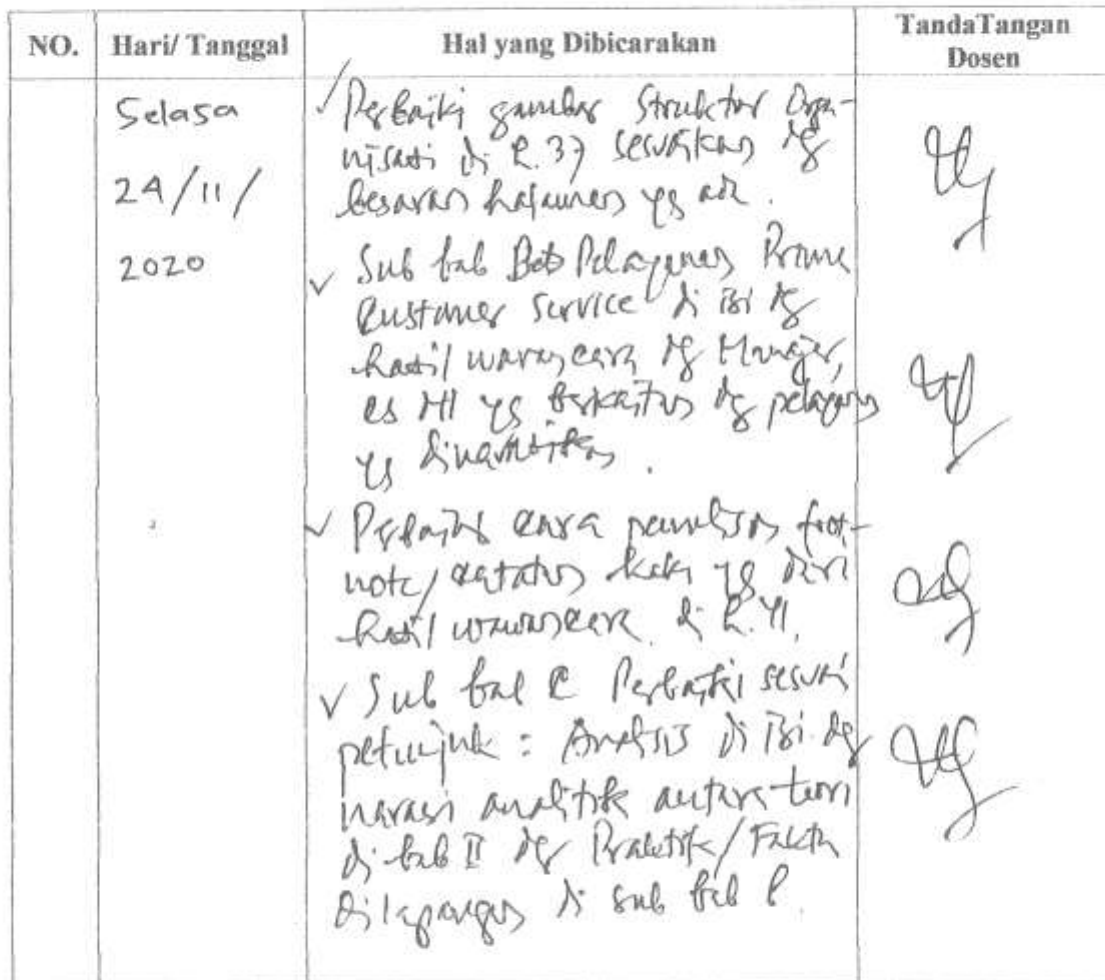 NO. Hari/ Tanggal Hal yang Dibicarakan TandaTangan Dosen
Selasa
24/11/
2020
✓ Perbaiki gambar Struktur Orga-
nisasi di h.37 sesuaikan dg
besaran halaman yg ada.
✓ Sub bab Pelayanan Prima
Customer Service di isi dg
hasil wawancara dg Manajer,
cs yg berkaitan dg pelayanan
yg dinarasikan.
✓ Perbaiki cara penulisan foot-
note/catatan kaki yg dari
hasil wawancara di h.41.
✓ Sub bab C Perbaiki sesuai
petunjuk : Analisis di isi dg
narasi analitik antara teori
di bab II dg Praktik/Fakta
dilapangan di sub bab